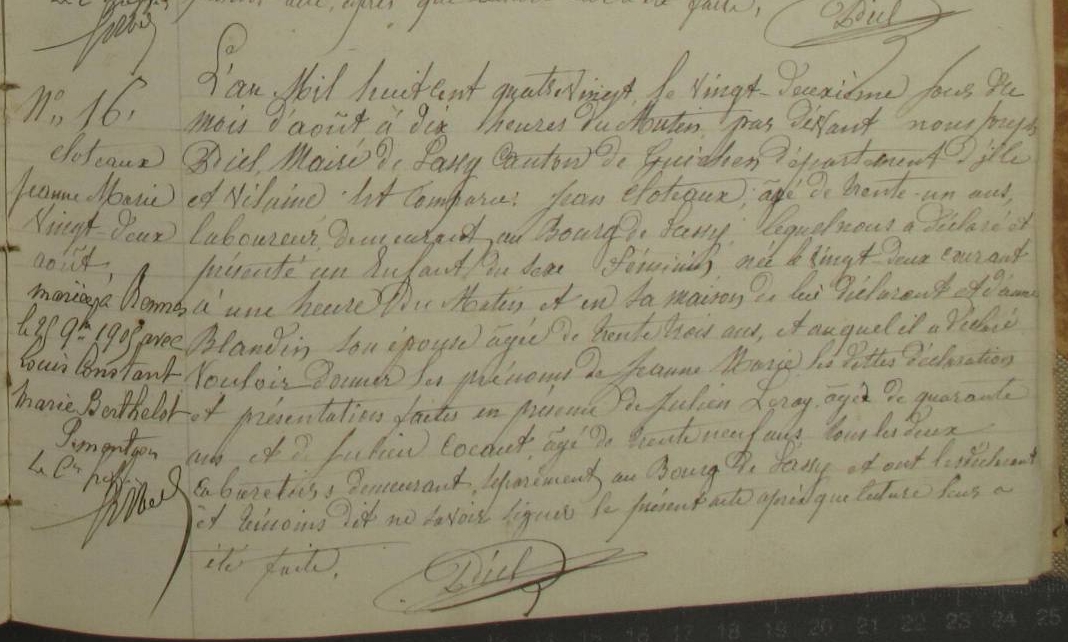 présent acte, après que lecture lui a été faite.
Diel
N° 16.
cloteaux
Jeanne Marie
Vingt-deux
août,
mariée à Rennes
le 25 9bre 1905 avec
Louis Constant
Marie Berthelot
L'an Mil huit Cent quatre Vingt, le Vingt-deuxième jour du
mois d'août à dix heures du Matin, par dévant nous Joseph
Diel, Maire de Lassy Canton de Guichen département d'ille
et Vilaine Est Comparu: Jean Cloteaux, agé de trente-un ans,
laboureur, demeurant au Bourg de Lassy, lequel nous a déclaré et
présenté un Enfant du sexe Féminin née le vingt-deux courant
à une heure Du Matin et en sa maison de lui déclarant et d'anne
Blandin son épouse âgée de trente trois ans, et auquel il a déclaré
Vouloir donner les prénoms de Jeanne Marie les dittes déclaration
et présentation faites en présence de Julien Leray, âgé de quarante
ans et de Julien Cocaut, âgé de trente neuf ans tous les deux
cabaretiers demeurant, séparément au Bourg de Lassy et ont le déclarant
et témoins dit ne savoir signer le présent acte après que lecture leur a
été faite.
Diel
18 19 20 21 22 23 24 25